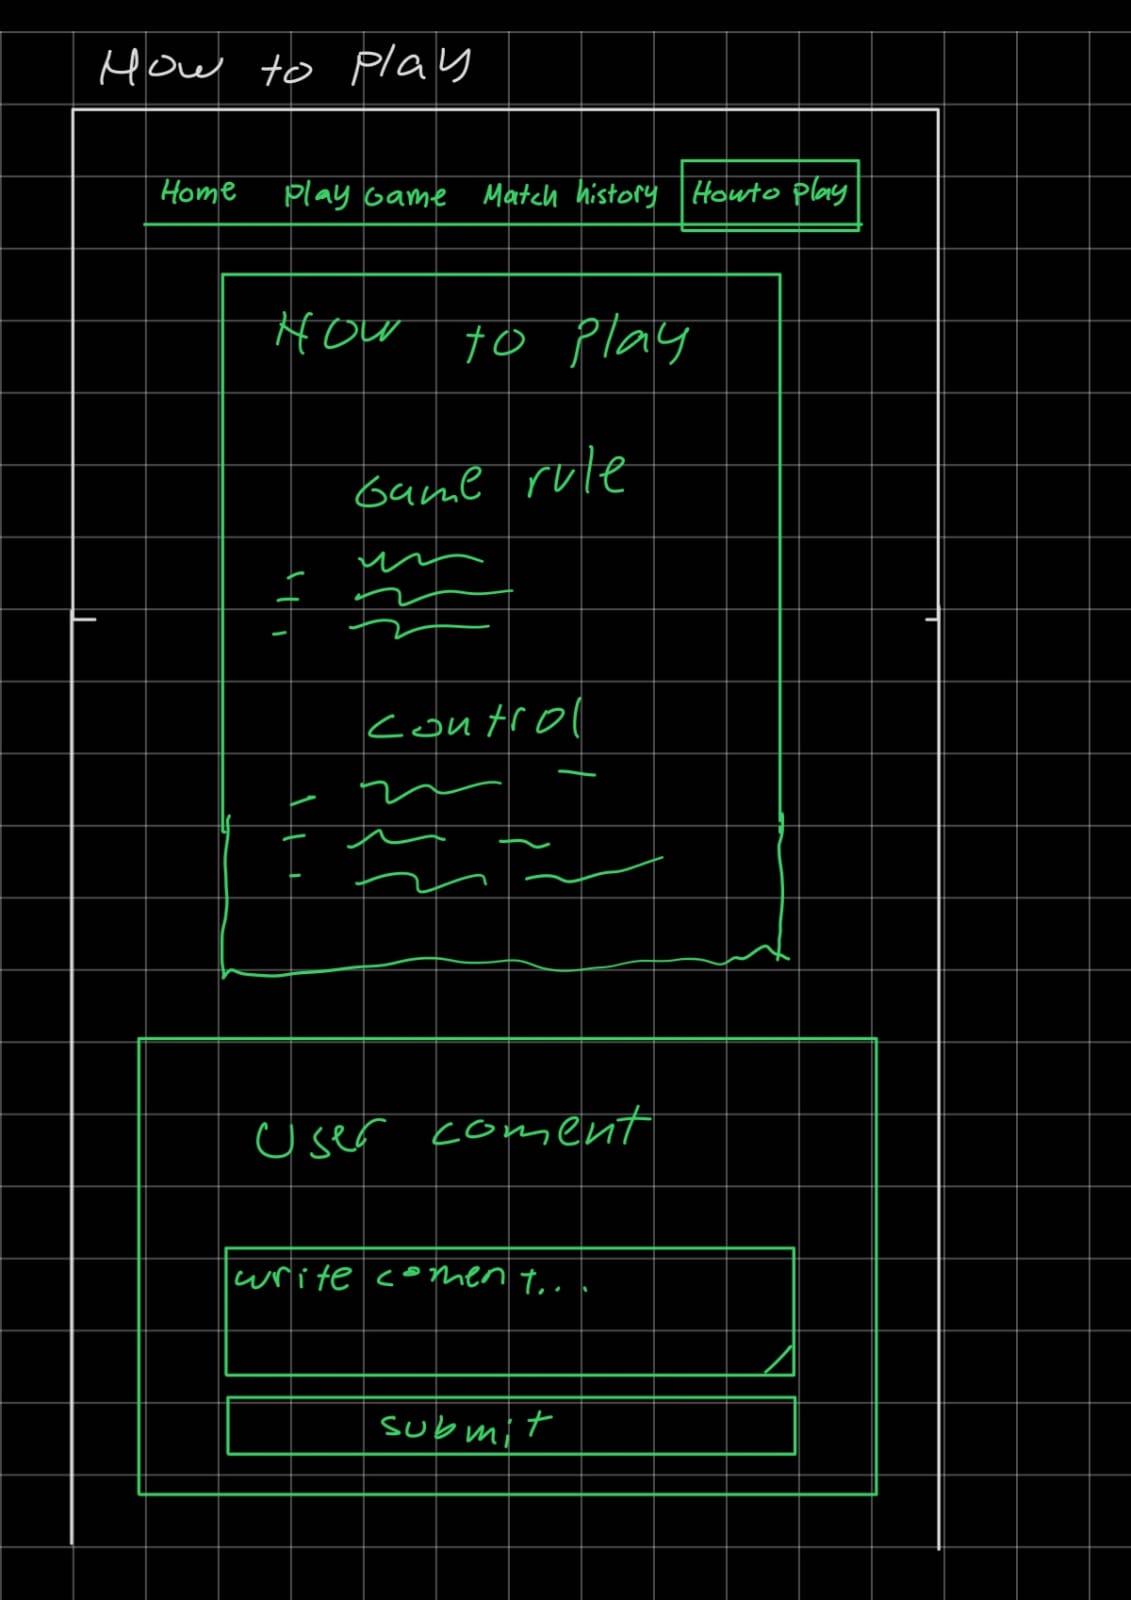 How to play
Home Play Game Match history Howto play
How to play
Game rule
control
User coment
write coment...
submit